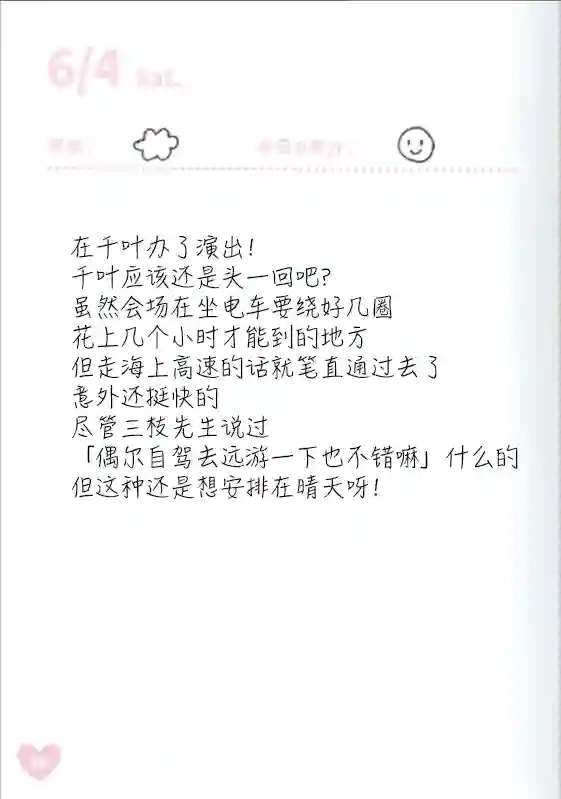 6/4 Sat.
在千叶办了演出!
千叶应该还是头一回吧?
虽然会场在坐电车要绕好几圈
花上几个小时才能到的地方
但走海上高速的话就笔直通过去了
意外还挺快的
尽管三枝先生说过
「偶尔自驾去远游一下也不错嘛」什么的
但这种还是想安排在晴天呀!